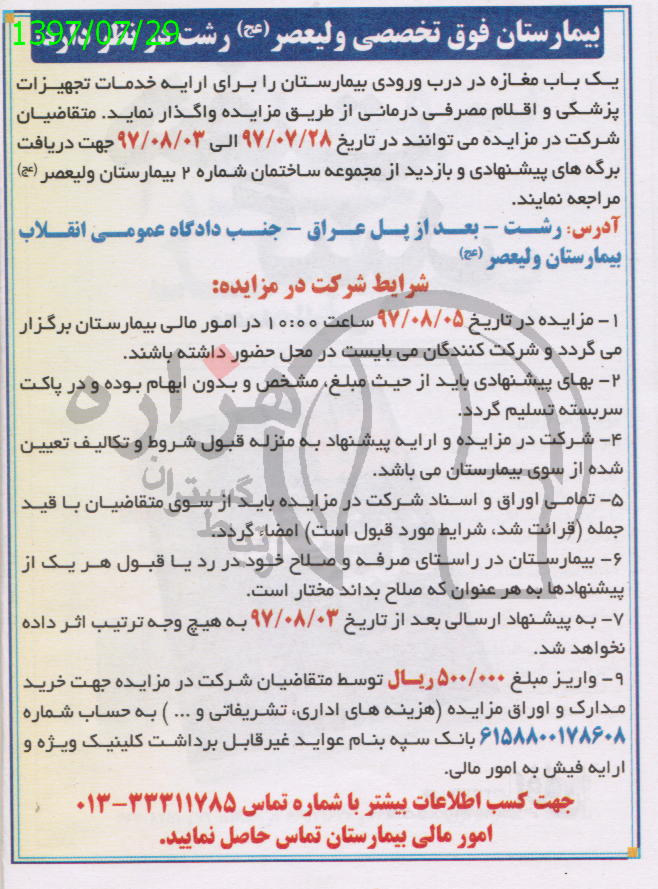 1397/07/29
بیمارستان فوق تخصصی ولیعصر (عج) رشت در نظر دارد:
یک باب مغازه در درب ورودی بیمارستان را برای ارایه خدمات تجهیزات
پزشکی و اقلام مصرفی درمانی از طریق مزایده واگذار نماید. متقاضیان
شرکت در مزایده می توانند در تاریخ ۹۷/۰۷/۲۸ الی ۹۷/۰۸/۰۳ جهت دریافت
برگه های پیشنهادی و بازدید از مجموعه ساختمان شماره ۲ بیمارستان ولیعصر (عج)
مراجعه نمایند.
آدرس: رشت – بعد از پل عراق – جنب دادگاه عمومی انقلاب
بیمارستان ولیعصر (عج)
شرایط شرکت در مزایده:
۱- مزایده در تاریخ ۹۷/۰۸/۰۵ ساعت ۱۰:۰۰ در امور مالی بیمارستان برگزار
می گردد و شرکت کنندگان می بایست در محل حضور داشته باشند.
۲- بهای پیشنهادی باید از حیث مبلغ، مشخص و بدون ابهام بوده و در پاکت
سربسته تسلیم گردد.
۴- شرکت در مزایده و ارایه پیشنهاد به منزله قبول شروط و تکالیف تعیین
شده از سوی بیمارستان می باشد.
۵- تمامی اوراق و اسناد شرکت در مزایده باید از سوی متقاضیان با قید
جمله (قرائت شد، شرایط مورد قبول است) امضاء گردد.
۶- بیمارستان در راستای صرفه و صلاح خود در رد یا قبول هر یک از
پیشنهادها به هر عنوان که صلاح بداند مختار است.
۷- به پیشنهاد ارسالی بعد از تاریخ ۹۷/۰۸/۰۳ به هیچ وجه ترتیب اثر داده
نخواهد شد.
۹- واریز مبلغ ۵۰۰/۰۰۰ ریال توسط متقاضیان شرکت در مزایده جهت خرید
مدارک و اوراق مزایده (هزینه های اداری، تشریفاتی و ... ) به حساب شماره
۶۱۵۸۸۰۰۱۷۸۶۰۸ بانک سپه بنام عواید غیرقابل برداشت کلینیک ویژه و
ارایه فیش به امور مالی.
جهت کسب اطلاعات بیشتر با شماره تماس ۳۳۳۱۱۷۸۵-۰۱۳
امور مالی بیمارستان تماس حاصل نمایید.
هزاره
گستران
ارتباط